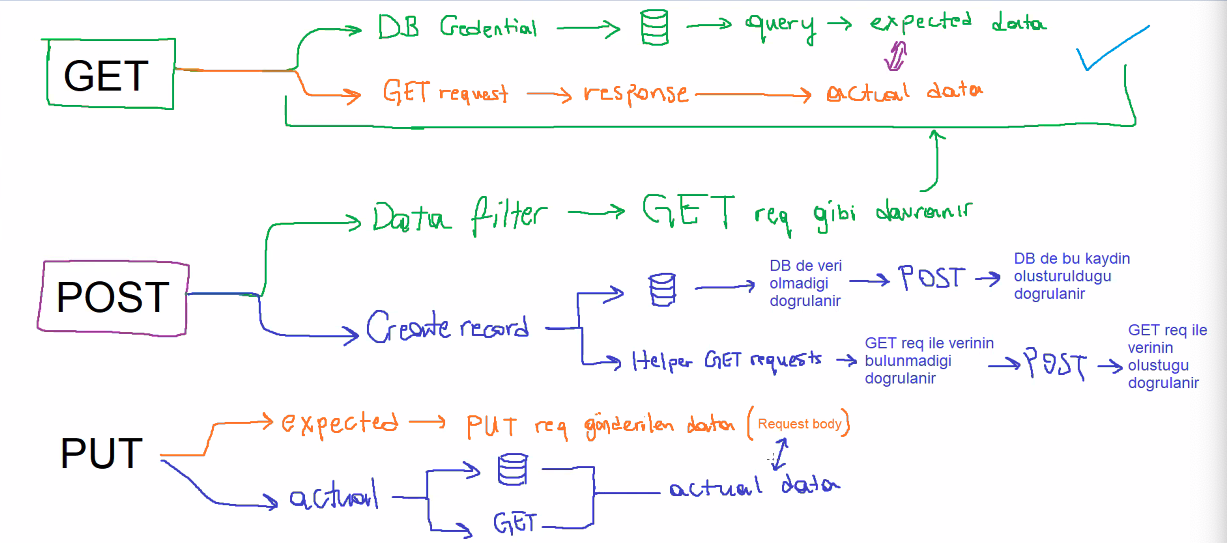 GET
DB Credential → query → expected data
GET request → response → actual data
POST
Data filter → GET req gibi davranır
Create record
DB de veri
olmadigi
dogrulanir
→ POST →
DB de bu kaydin
olusturuldugu
dogrulanir
Helper GET requests →
GET req ile verinin
bulunmadigi
dogrulanir
→ POST →
GET req ile
verinin
olustugu
dogrulanir
PUT
expected → PUT req gönderilen data (Request body)
actual
GET
actual data